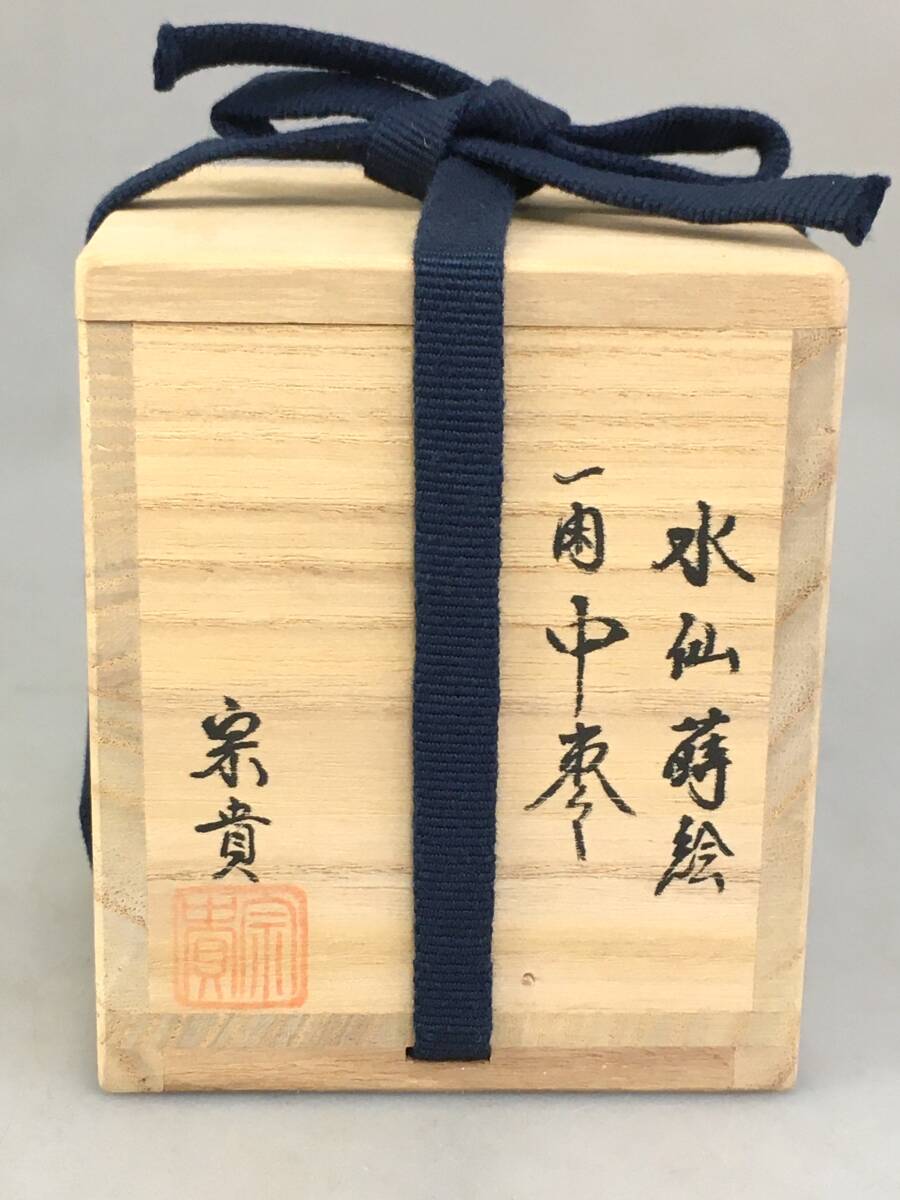 水仙蒔絵
一閑中棗
宗貴
宗貴